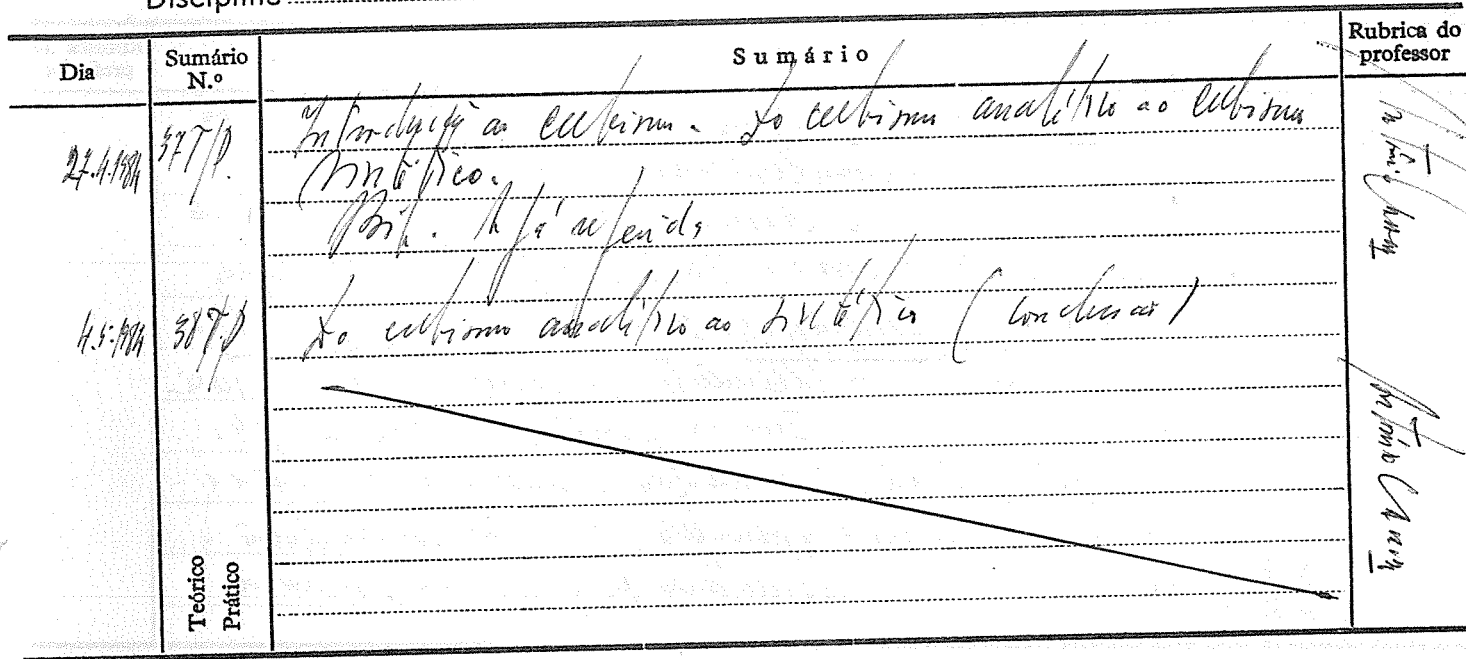 Discipline
Dia
Sumário N.º
Sumário
Rubrica do professor
27.4.1984
37 T/P.
Introdução ao cubismo. Do cubismo analítico ao cubismo
sintético.
Bib. A já referida
4.5.1984
38 T.P
Do cubismo analítico ao sintético (conclusão)
Teórico
Prático